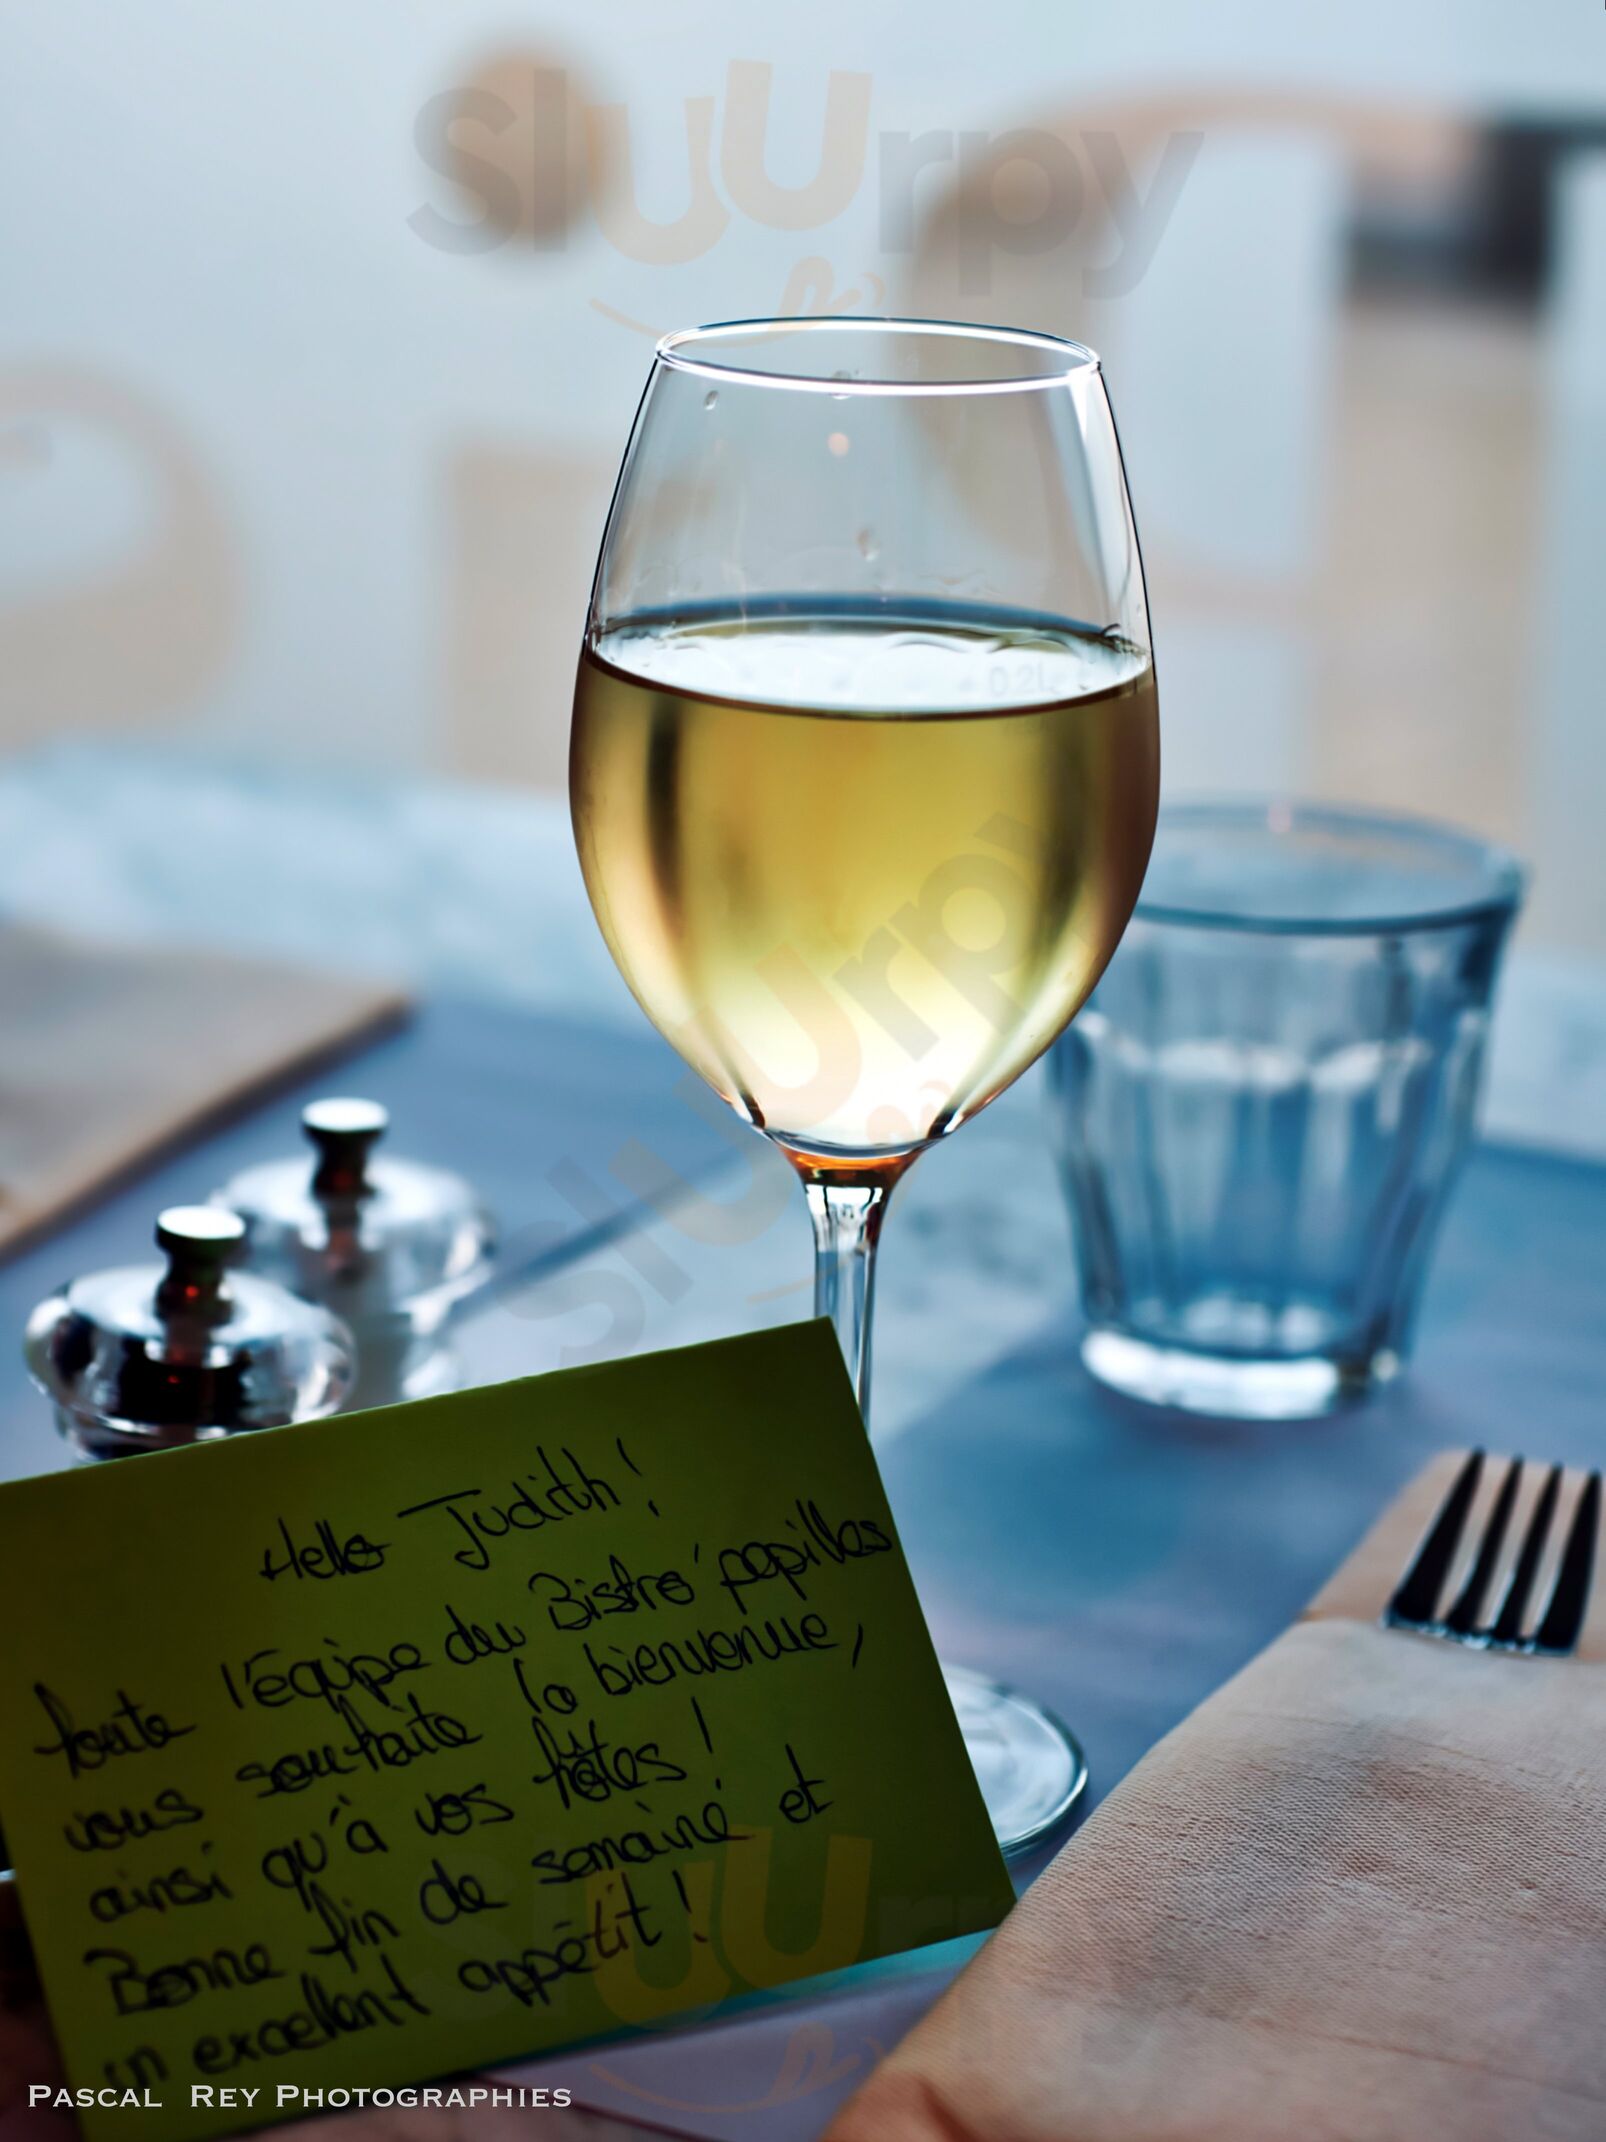 Sluurpy
0.2L
Sluurpy
Hello Judith!
toute l'équipe du Bistro' papilles
vous souhaite la bienvenue,
ainsi qu'à vos hôtes!
Bonne fin de semaine et
un excellent appétit!
Sluurpy
Pascal Rey Photographies